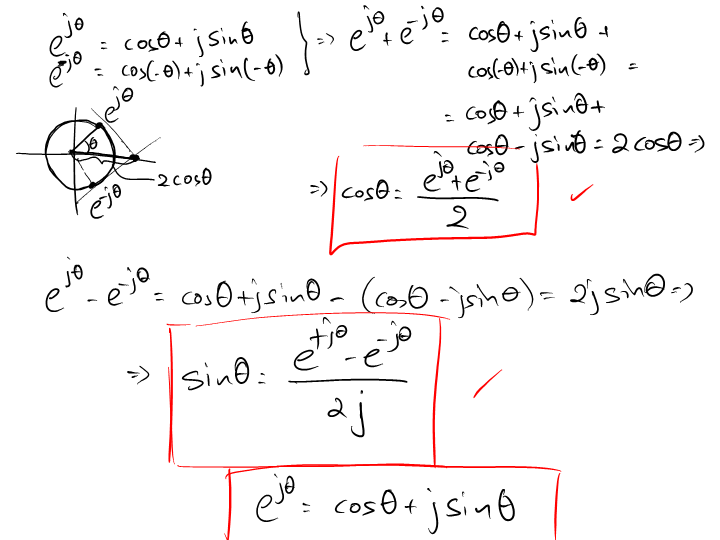 e^{jθ} = cosθ + j sinθ
e^{-jθ} = cos(-θ) + j sin(-θ) } => e^{jθ} + e^{-jθ} = cosθ + j sinθ +
cos(-θ) + j sin(-θ) =
= cosθ + j sinθ +
cosθ - j sinθ = 2 cosθ =>
e^{jθ}
θ
2 cosθ
e^{-jθ}
=> cosθ = (e^{jθ} + e^{-jθ}) / 2 ✓
e^{jθ} - e^{-jθ} = cosθ + j sinθ - (cosθ - j sinθ) = 2j sinθ =>
=> sinθ = (e^{+jθ} - e^{-jθ}) / 2j ✓
e^{jθ} = cosθ + j sinθ